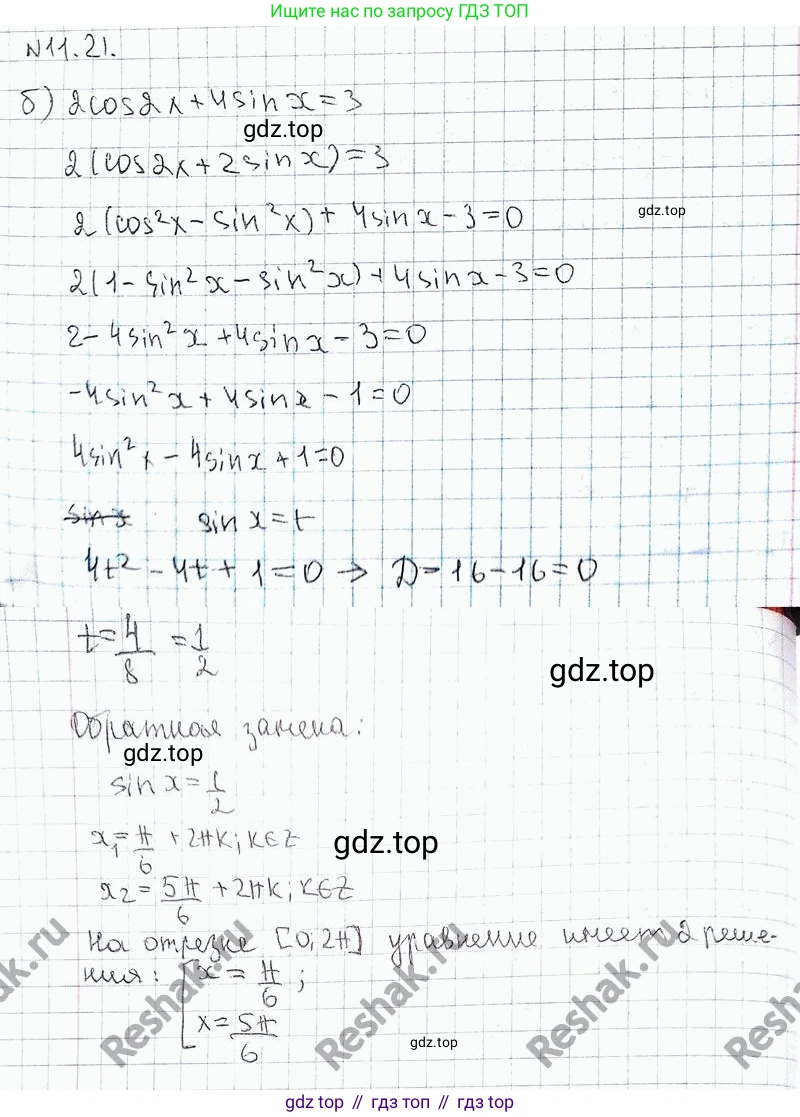 Ищите нас по запросу ГДЗ ТОП
№11.21.
б) 2cos2x+4sinx=3
gdz.top
2(cos2x+2sinx)=3
2(cos²x-sin²x)+4sinx-3=0
gdz.top
2(1-sin²x-sin²x)+4sinx-3=0
2-4sin²x+4sinx-3=0
-4sin²x+4sinx-1=0
4sin²x-4sinx+1=0
sinx sinx=t
4t²-4t+1=0 → D=16-16=0
t=4/8=1/2
gdz.top
Обратная замена:
gdz.top
sinx=1/2
x₁=π/6+2πk; k∈Z
gdz.top
x₂=5π/6+2πk; k∈Z
На отрезке [0;2π] уравнение имеет 2 реше-
ния: [x=π/6;
x=5π/6
Reshak.ru
Reshak.ru
Reshak.ru
gdz.top
gdz top // гдз топ // gdz top